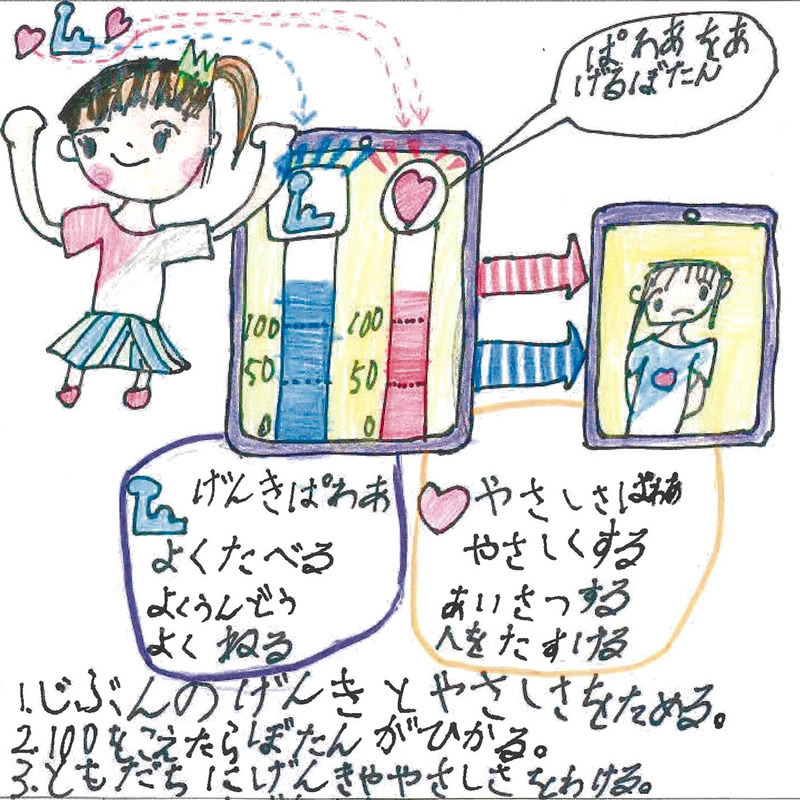 ぱわあをあ
げるぼたん
100
50
0
100
50
0
げんきぱわあ
よくたべる
よくうんどう
よくねる
やさしさぱわあ
やさしくする
あいさつする
人をたすける
1.じぶんのげんきとやさしさをためる。
2.100をこえたらぼたんがひかる。
3.ともだちにげんきややさしさをわける。